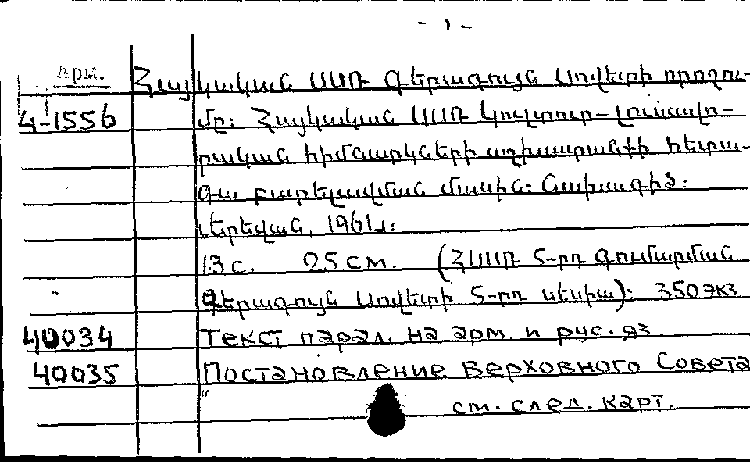 - 1 -
արմ. Հայկական ՍՍՌ Գերագույն Սովետի որոշու-
4-1556 մը: Հայկական ՍՍՌ կուլտուր-լուսավո-
րական հիմնարկների աշխատանքի հետա-
գա բարելավման մասին: Նախագիծ:
Երևան, 1961:
13 с. 25 см. (ՀՍՍՌ 5-րդ գումարման
Գերագույն Սովետի 5-րդ սեսիա): 350 экз.
40034 Текст парал. на арм. и рус. яз.
40035 Постановление Верховного Совета
см. след. карт.